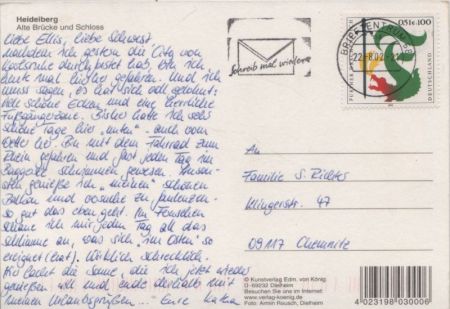 Heidelberg
Alte Brücke und Schloss
liebe Ellis, liebe Schwest.
nachdem ich gestern die City von
Karlsruhe durch habe, bin ich
heute mal hierher gefahren. Und ich
muss sagen, es hat sich voll gelohnt:
viele schöne Ecken und eine herrliche
Fußgängerzone. Bisher hatte ich sehr
schöne Tage hier „unten" - auch vom
Wetter her. Bin mit dem Fahrrad zum
Rhein gefahren und fast jeden Tag im
Baggersee schwimmen gewesen. Ansonsten
genieße ich „meinen" schönen
Balkon und versuche zu faulenzen -
so gut das eben geht. Im Fernsehen
schaue ich mir jeden Tag all das
schlimme an, was sich „im Osten" so
ereignet (hat). Wirklich schrecklich.
lacht die Sonne, die ich jetzt wieder
genießen will und ende deshalb mit
meinen Urlaubsgrüßen... Eure
Schreib mal wieder
BRIEFZENTRUM
22.-8.02
0,51€ 100
DEUTSCHLAND
An
Familie S. Richter
Klingerstr. 47
09117 Chemnitz
© Kunstverlag Edm. von König
D-69232 Dielheim
Besuchen Sie uns im Internet:
www.verlag-koenig.de
Foto: Armin Rausch, Dielheim
4 023198 030006